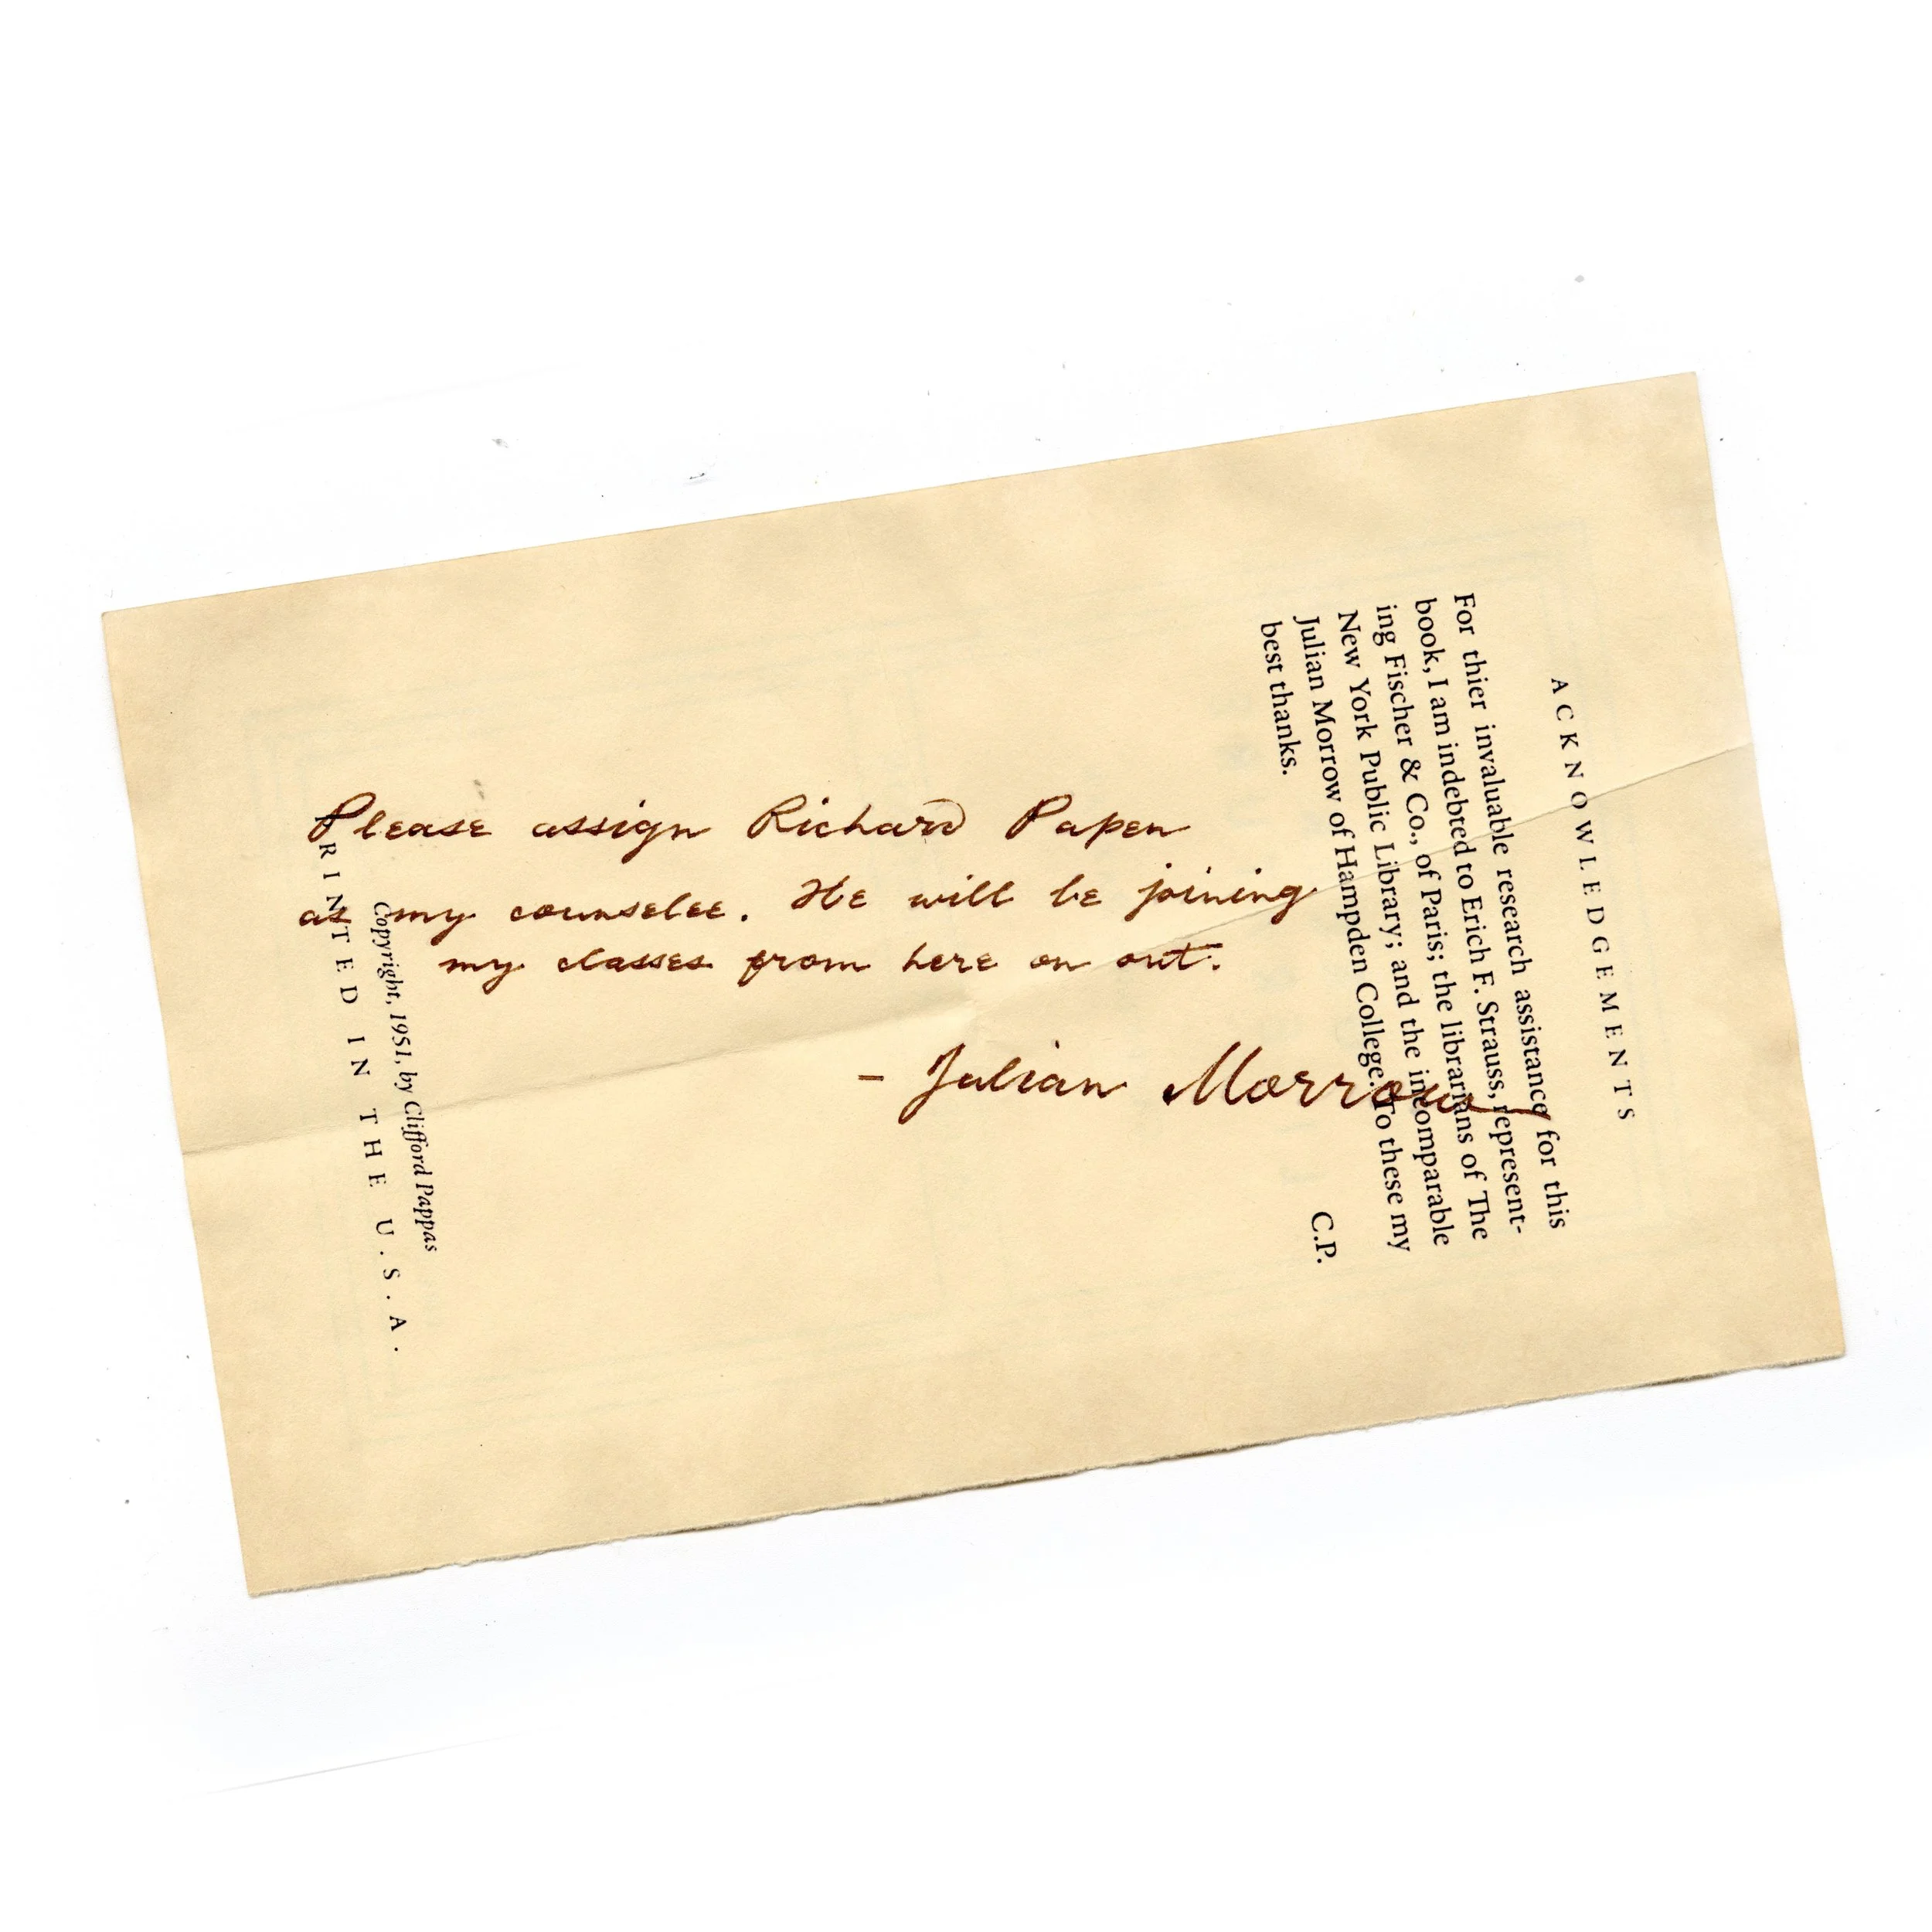 Please assign Richard Papen
as my counselee. He will be joining
my classes from here on out.
- Julian Morrow
ACKNOWLEDGEMENTS
For thier invaluable research assistance for this
book, I am indebted to Erich F. Strauss, represent-
ing Fischer & Co., of Paris; the librarians of The
New York Public Library; and the incomparable
Julian Morrow of Hampden College. To these my
best thanks.
C.P.
Copyright, 1951, by Clifford Pappas
PRINTED IN THE U.S.A.